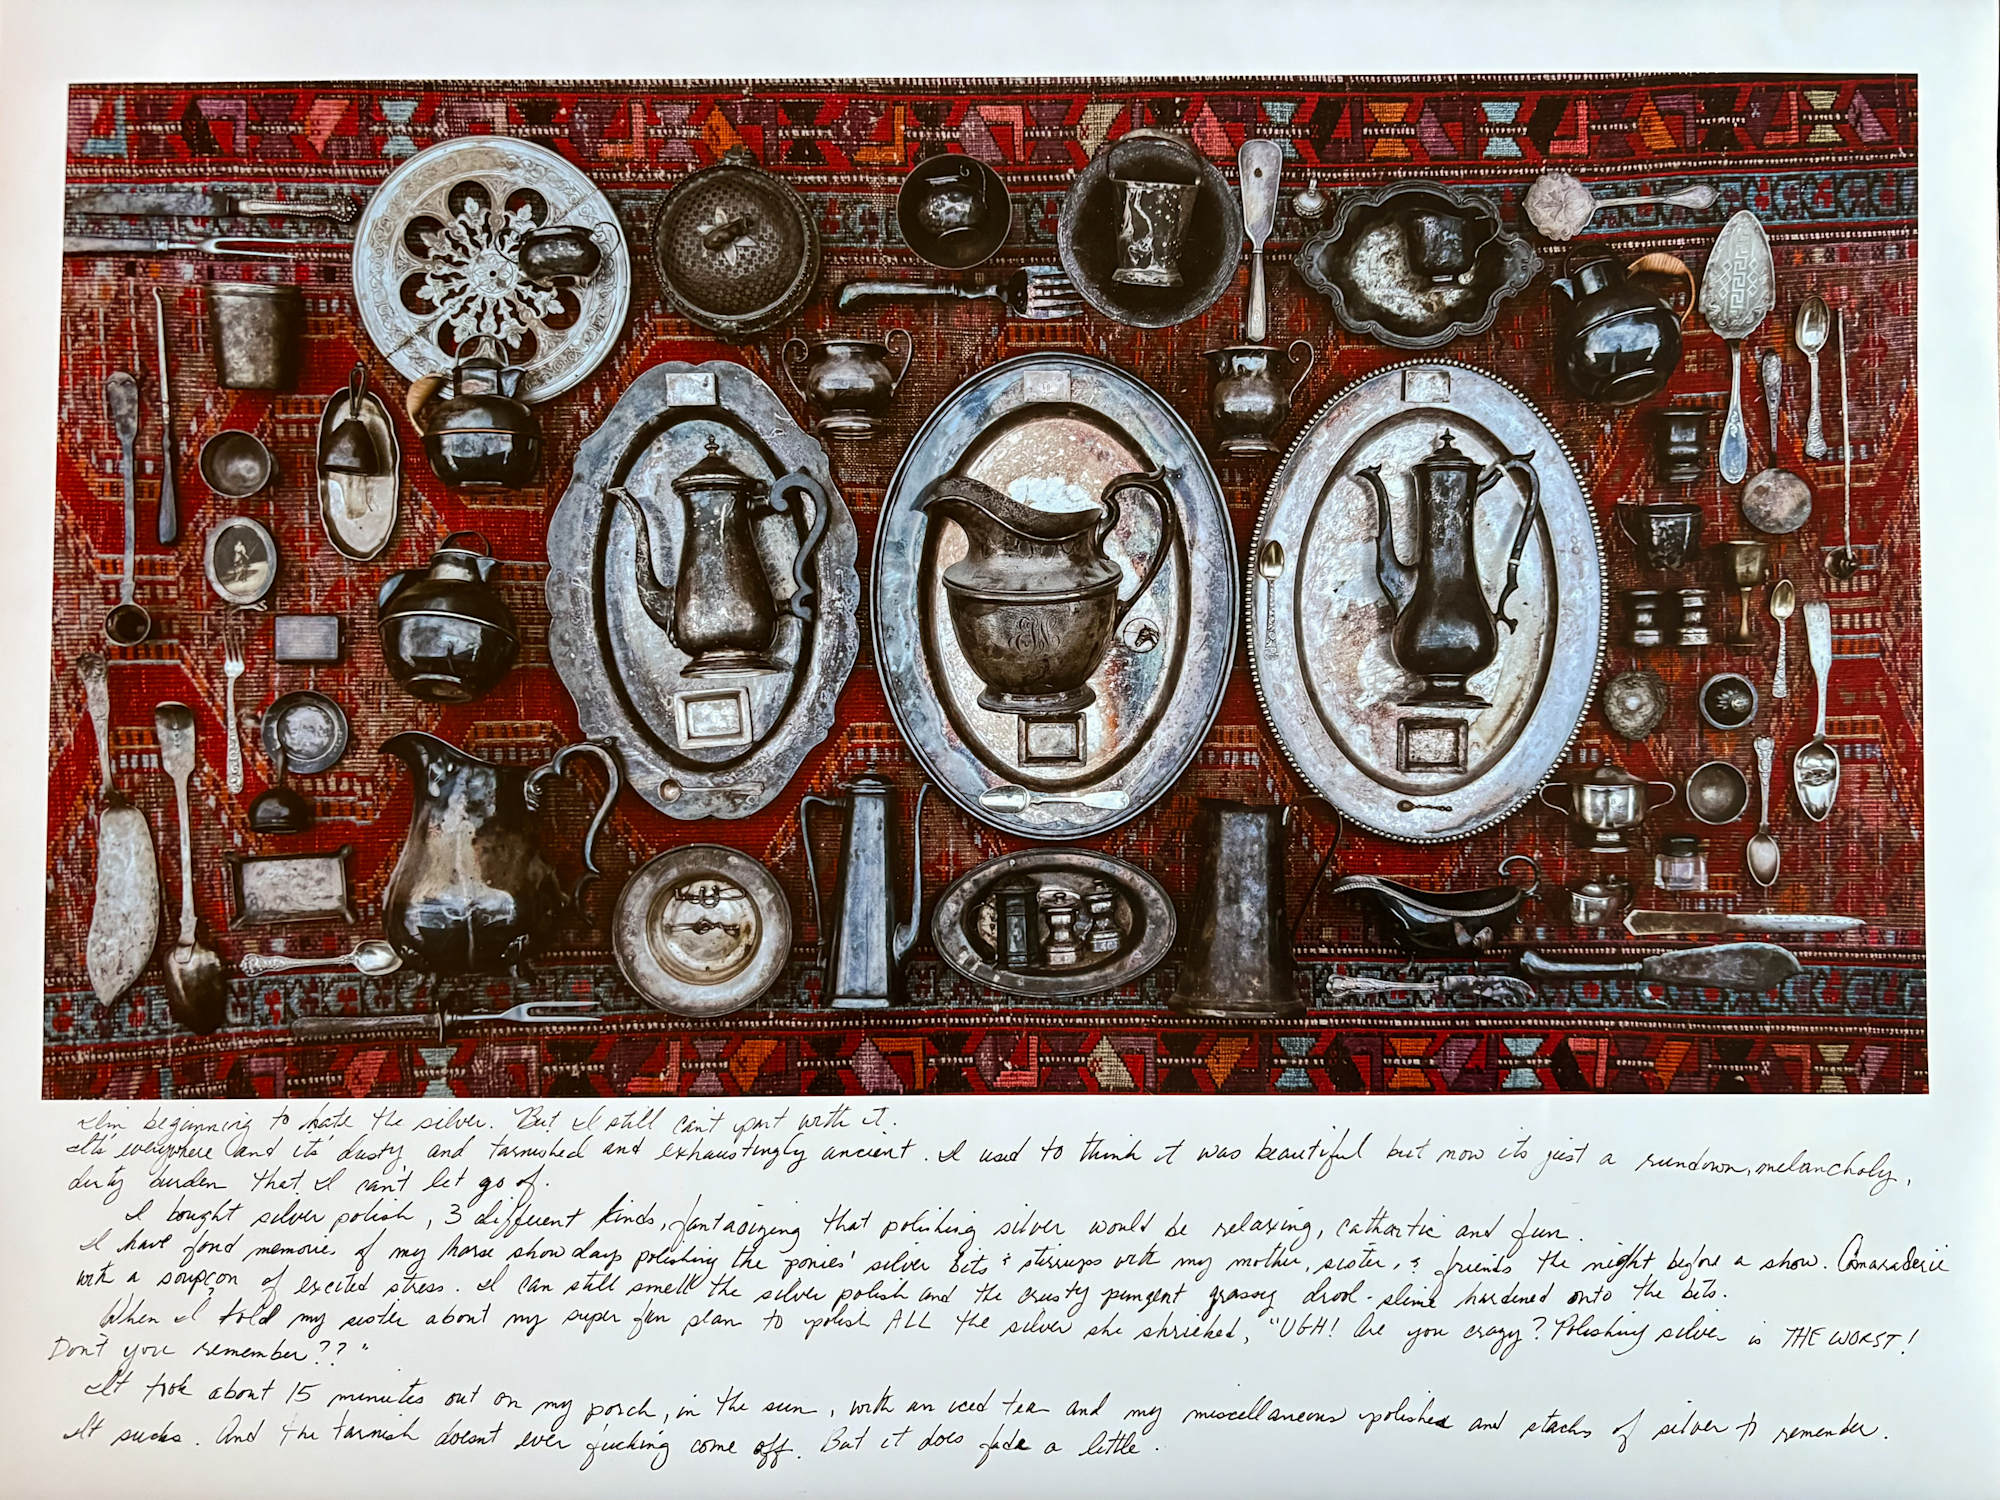 I'm beginning to hate the silver. But I still can't part with it.
It's everywhere and its' dusty and tarnished and exhaustingly ancient. I used to think it was beautiful but now its just a rundown, melancholy,
dirty burden that I can't let go of.
I bought silver polish, 3 different kinds, fantasizing that polishing silver would be relaxing, cathartic and fun.
I have fond memories of my horse show days polishing the ponies' silver bits & stirrups with my mother, sister, & friends the night before a show. Camaraderie
with a soupçon of excited stress. I can still smell the silver polish and the crusty pungent grassy drool-slime hardened onto the bits.
When I told my sister about my super fun plan to polish ALL the silver she shrieked, "UGH! Are you crazy? Polishing silver is THE WORST!
Don't you remember??"
It took about 15 minutes out on my porch, in the sun, with an iced tea and my miscellaneous polishes and stacks of silver to remember.
It sucks. And the tarnish doesn't ever fucking come off. But it does fade a little.